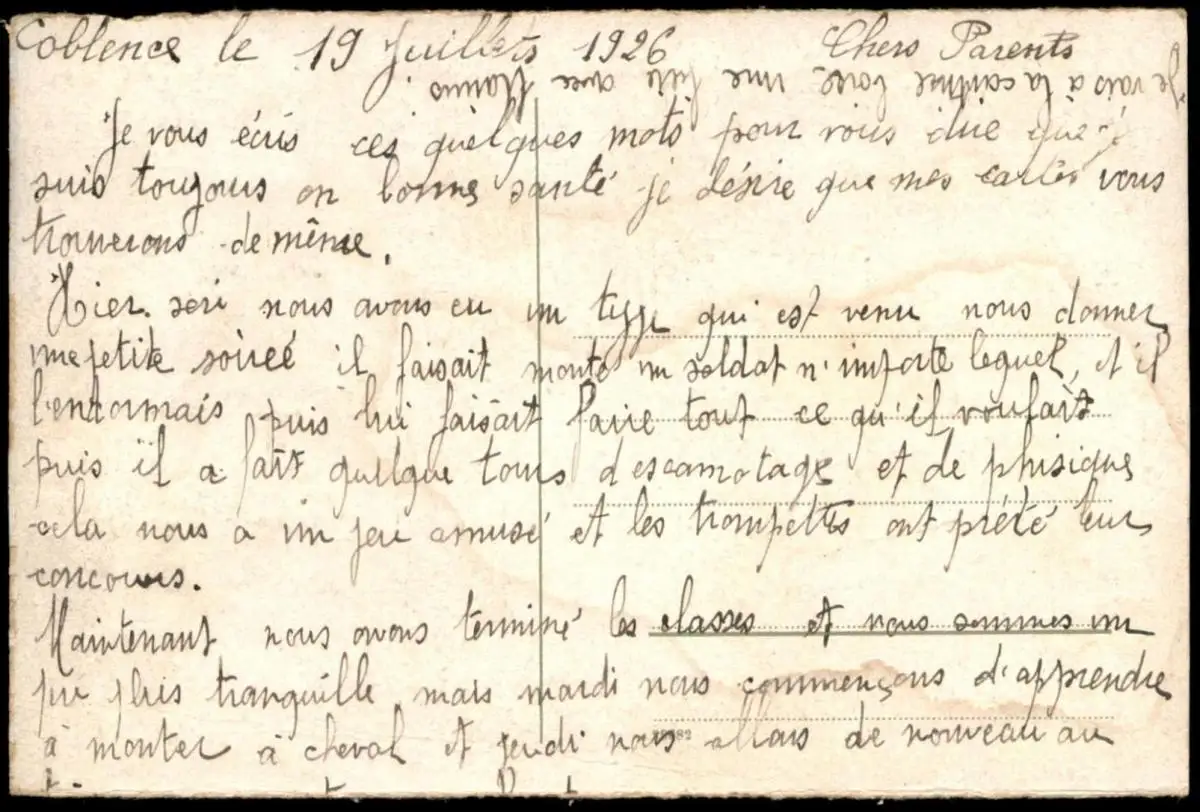 Coblence le 19 Juillets 1926 Chers Parents
Je vais à la cantine boire une avec
Je vous écris ces quelques mots pour vous dire que j
suis toujours en bonne santé je désire que mes cartes vous
trouverons de même.
Hier sori nous avons eu un type qui est venu nous donner
une petite soireé il faisait monté un soldat n'importe lequel, et il
l'endormais puis lui faisait faire tout ce qu'il voulait
puis il a fait quelque tours d'escamotage et de phisique
cela nous a un peu amusé et les trompettes ont prété leur
concours.
Maintenant nous avons terminé les classes et nous sommes un
peu plus tranquille mais mardi nous commençons d'apprendre
à monter à cheval et jeudi nous allons de nouveau au